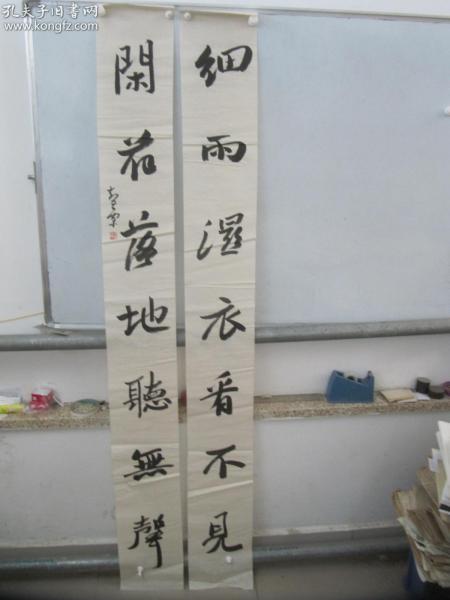 孔夫子旧书网
www.kongfz.com
细雨濕衣看不見
閑花落地聽無聲